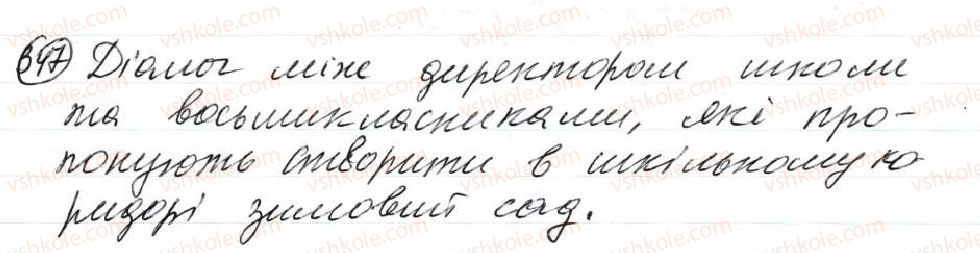 647 Діалог між директором школи
та восьмикласниками, які про-
понують створити в шкільному ко
ридорі зимовий сад.